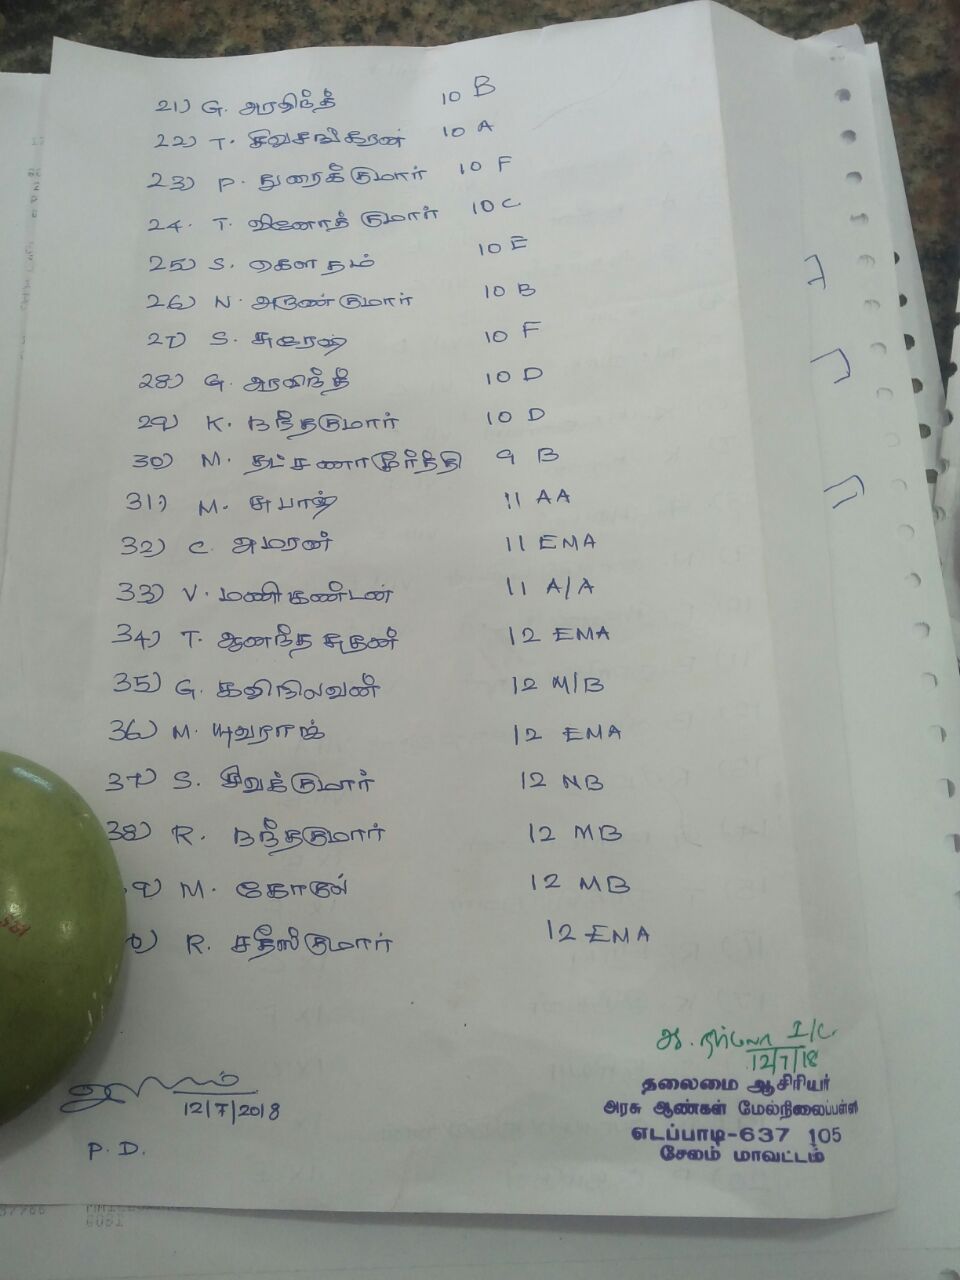 21) G. அரவிந்த் 10 B
22) T. சிவசங்கரன் 10 A
23) P. துரைக்குமார் 10 F
24. T. வினோத் குமார் 10 C
25) S. கௌதம் 10 E
26) N. அருண்குமார் 10 B
27) S. சுரேஷ் 10 F
28) G. அரவிந்த் 10 D
29) K. நந்தகுமார் 10 D
30) M. தட்சணாமூர்த்தி 9 B
31) M. சுபாஷ் 11 AA
32) C. அமரன் 11 EMA
33) V. மணிகண்டன் 11 A/A
34) T. ஆனந்த சுதன் 12 EMA
35) G. கவிநிலவன் 12 M/B
36) M. யுவராஜ் 12 EMA
37) S. சிவக்குமார் 12 NB
38) R. நந்தகுமார் 12 MB
9) M. கோகுல் 12 MB
0) R. சதீஸ்குமார் 12 EMA
12/7/2018
P. D.
I/C.
12/7/18
தலைமை ஆசிரியர்
அரசு ஆண்கள் மேல்நிலைப்பள்ளி
எடப்பாடி-637 105
சேலம் மாவட்டம்